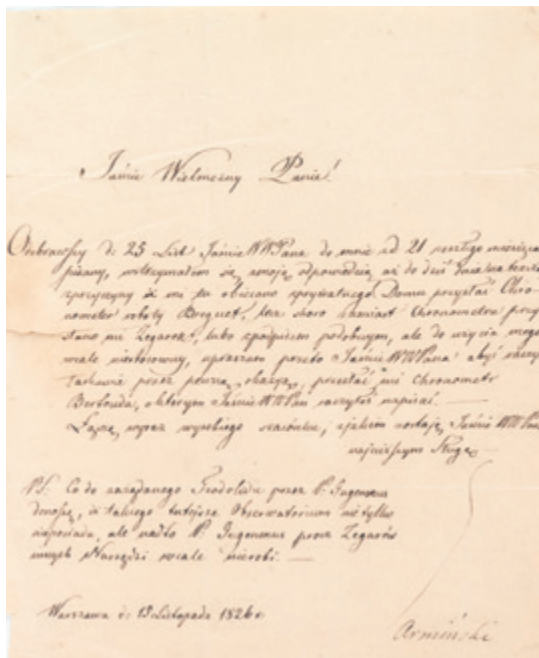 Jaśnie Wielmożny Panie!
Odebrawszy d: 25 List Jaśnie WWPana do mnie od 21 zeszłego miesiąca
pisany, wstrzymałem się, z moją odpowiedzią aż do dziś dnia
z przyczyny iż mi tu obiecano z prywatnego Domu przysłać Chro-
nometer roboty Breguet, lecz skoro zamiast Chronometru przy-
słano mi Zegarek, lubo z podobnym, ale do użycia mego
wcale niestosowny, upraszam przeto Jaśnie WWPana abyś raczył
łaskawie przez pewną okazyę, przesłać mi Chronometr
Berthouda, o którym Jaśnie WWPan raczyłeś napisać. —
Łączę wyraz wysokiego szacunku, z jakim zostaję Jaśnie WWPana
najniższym Sługą
PS. Co do żądanego Teodolitu przez P. Gugenmus
donoszę, iż takiego tutejsze Obserwatorium nie tylko
nieposiada, ale nadto P. Gugenmus prócz Zegarów
innych Narzędzi wcale nierobi. —
Warszawa d: 13 Listopada 1826 r.
Armiński